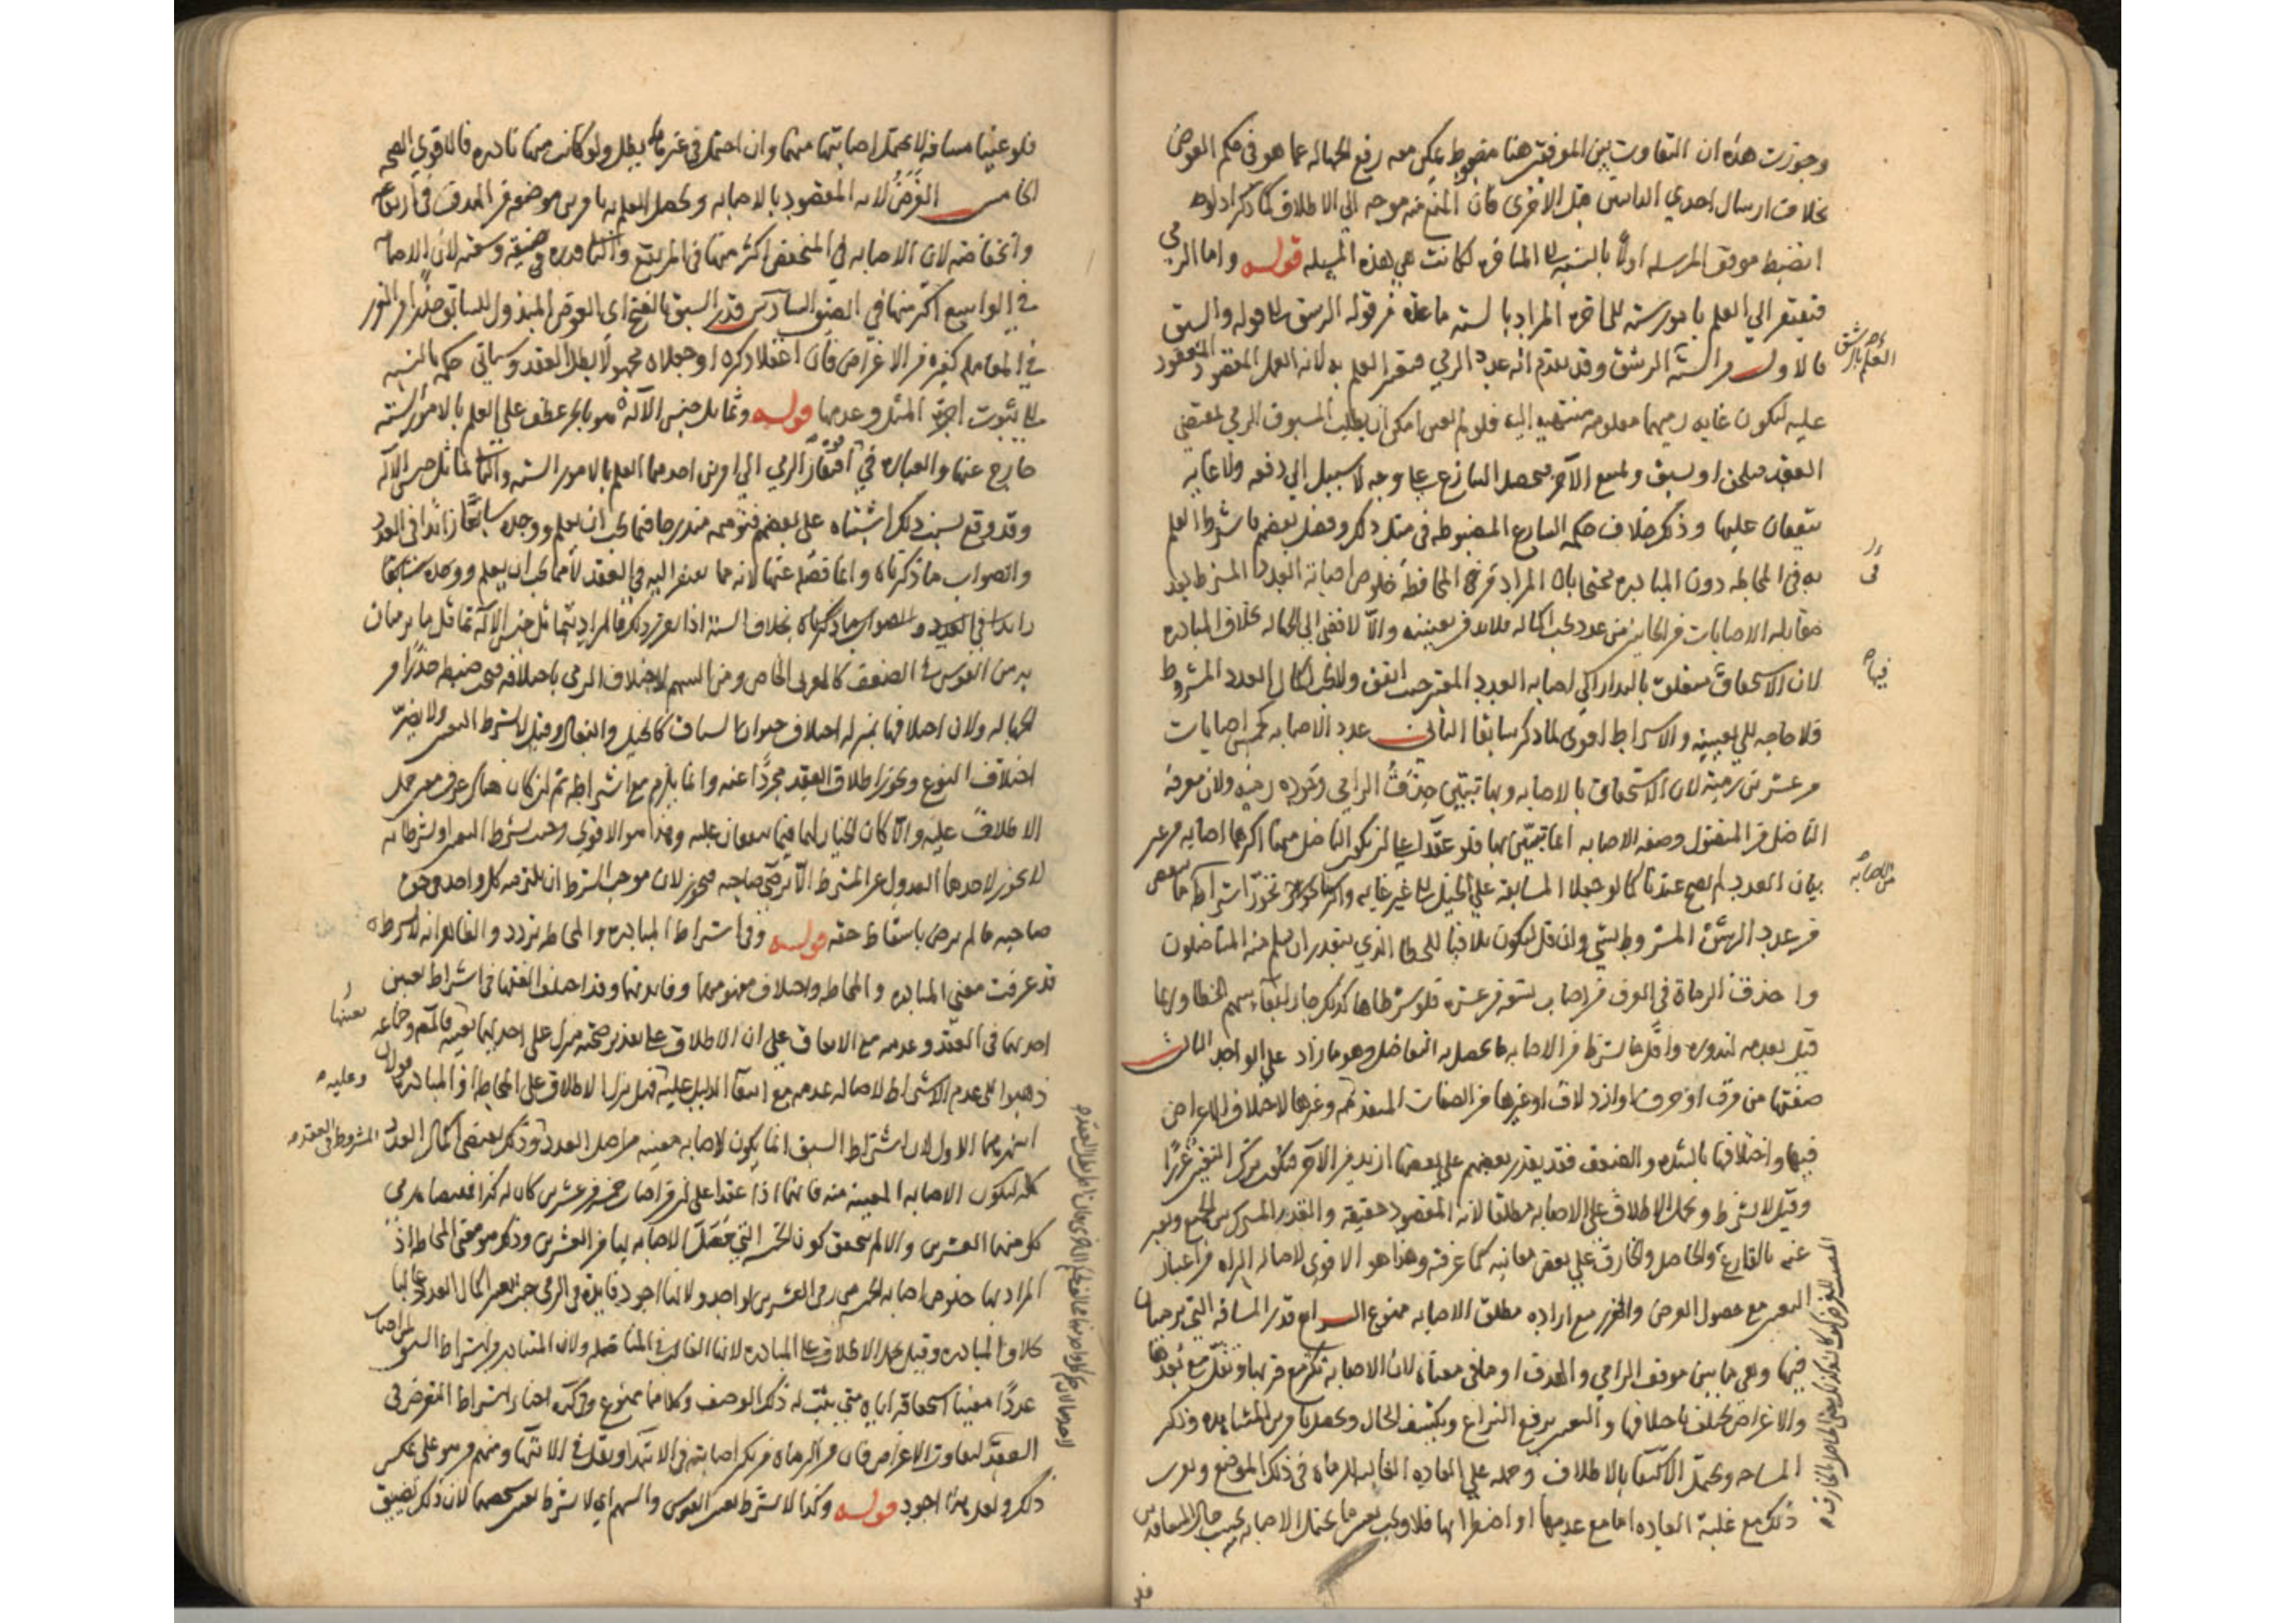 وجوزت هذه ان التفاوت بين الموقفين هنا مضبوط يمكن معه رفع الجهالة عما هو في حكم العوض
بخلاف ارسال احدي الدابتين قبل الاخرى فان المنع منه موجه الي الاطلاق كما ذكر اذ لو
انضبط موقف المرسلة اولا بالنسبة الى المتاخرة لكانت هي هذه المسئلة قوله واما الرمي
فيفتقر الي العلم بامور ستة المراد بالستة ما عده من قوله الرشق الى قوله والسبق
فالاول من الستة الرشق وقد تقدم انه عدد الرمي فيعتبر العلم به لانه العمل المقصود المعقود
عليه ليكون غاية رميهما معلومة منتهية اليه فلو لم يعين امكن ان يطلب المسبوق الرمي لمقتضي
العقد فيلحق او يسبق ويمنع الآخر فيحصل التنازع على وجه لا سبيل الي دفعه ولا غاية
يتفقان عليها وذلك خلاف حكمة الشارع المضبوطة في مثل ذلك وفصل بعضهم فاشترط العلم
به في المحاطة دون المبادرة محتجا بان المراد من المحاطة خلوص اصابة العدد المشترط بعد
مقابلة الاصابات من الجانبين من عدد يجب اكماله فلا بد من تعيينه والا لافضى الي الجهالة بخلاف المبادرة
لان الاستحقاق متعلق بالبدار الى اصابة العدد المعتبر حيث اتفق ولا يجب اكمال العدد المشروط
فلا حاجة الى تعيينه والاشتراط اقوى لما ذكر سابقا الثاني عدد الاصابة كخمس اصابات
من عشرين رمية لان الاستحقاق بالاصابة وبها يتبين حذق الرامي وجودة رميه ولان معرفة
الناضل من المنضول وصفة الاصابة انما تتبين بها فلو عقدا على ان يكون الناضل منهما اكثرهما اصابة من غير
بيان العدد لم يصح عندنا كما لو جعلا المسابقة علي الخيل الى غير غاية واكثر ما يجوز اشتراطه ما ينقص
من عدد الرشق المشروط بشي وان قل ليكون متلافيا للخطا الذي يتعذر ان يسلم منه المتناضلون
واحذق الرماة في العرف من اصاب تسعة من عشرة فلو شرطاها كذلك جاز لبقاء سهم الخطا وربما
قيل بعدمه لندوره واقل ما يشترط من الاصابة ما يحصل به التفاضل وهو ما زاد على الواحد الثالث
صفتها من مرق او خرق او ازدلاف او غيرها من الصفات المتقدمة وغيرها لاختلاف الاغراض
فيها واختلافها بالشدة والضعف فقد يقدر بعضهم علي بعضها ازيد من الآخر فيكون ترك التعيين غررا
وقيل لا يشترط ويحمل الاطلاق على الاصابة مطلقا لانه المقصود حقيقة والقدر المشترك بين الجميع ويعبر
عنه بالقارع والحاصل والخارق علي بعض معانيه كما عرفته وهذا هو الاقوى لاصالة البراءة من اعتبار
التعيين مع حصول الغرض والغرر مع ارادة مطلق الاصابة ممنوع الرابع قدر المسافة التي يرميان
فيها وهي ما بين موقف الرامي والهدف او ما في معناه لان الاصابة تكثر مع قربها وتقل مع بعدها
والاغراض تختلف باختلافها والتعيين يرفع النزاع ويكشف الحال ويحصل بامرين المشاهدة وذكر
المساحة ويحتمل الاكتفا بالاطلاق وحمله علي العادة الغالبة للرماة في ذلك الموضع ويقرب
ذلك مع غلبة العادة اما مع عدمها او اضطرابها فلا ويجب تعيين ما يحتمل الاصابة بحسب حال المتعاقدين
العلم بالرشق
فيها
من الاصابة
فلو
فلو عينا مسافة لا يحتمل اصابتهما منها وان احتمل في غيرهما بطل ولو كانت منهما نادرة فالاقوى الصحة
الخامس الغرض لانه المقصود بالاصابة ويحصل العلم به بامرين موضعه من الهدف في ارتفاعه
وانخفاضه لان الاصابة في المنخفض اكثر منها في المرتفع والثاني قدره في ضيقه وسعته لان الاصابة
في الواسع اكثر منها في الضيق السادس قدر السبق بالفتح اي العوض المبذول للسابق حذرا من الغرر
في المعاملة كغيره من الاعواض فان اغفلا ذكره او جعلاه مجهولا بطل العقد وسياتي حكمه بالنسبة
الى ثبوت اجرة المثل وعدمها قوله وتماثل جنس الآلة هو بالجر عطف علي العلم بالامور الستة
خارج عنها والعبارة في افتقار الرمي الي امرين احدهما العلم بالامور الستة والثاني تماثل جنس الآلة
وقد وقع بسبب ذلك اشتباه على بعضهم فتوهمه مندرجا فيما يجب ان يعلم ووجده سابعا زائدا في العدد
والصواب ما ذكرناه وانما فصله عنها لانه مما يفتقر اليه في العقد لا مما يجب ان يعلم
بخلاف الستة اذا تقرر ذلك فالمراد بتماثل جنس الآلة تماثل ما يرميان
به من القوس في الصنف كالعربي الخاص ومن السهم لاختلاف الرمي باختلافه فيجب ضبطه حذرا من
الجهالة ولان اختلافها بمنزلة اختلاف حيوان السباق كالخيل والبغال وقيل لا يشترط التعيين ولا يضر
اختلاف النوع ويجوز اطلاق العقد مجردا عنه وانما يلزم مع اشتراطه ثم ان كان هناك عرف معين حمل
الاطلاق عليه والا كان الخيار لهما فيما يتفقان عليه وهذا هو الاقوى وحيث يشترط التعيين او يشترطانه
لا يجوز لاحدهما العدول عن المشترط الا برضى صاحبه فيجوز لان موجب الشرط ان يلتزمه كل واحد وحق
صاحبه ما لم يرض باسقاط حقه قوله وفي اشتراط المبادرة والمحاطة تردد والظاهر انه لا يشترط
قد عرفت معني المبادرة والمحاطة واختلاف مفهومهما وفائدتهما وقد اختلف الفقها في اشتراط تعيين
احدهما في العقد وعدمه مع الاتفاق على ان الاطلاق على تقدير صحته منزل على احدهما بعينه فالمص وجماعة
ذهبوا الى عدم الاشتراط لاصالة عدمه مع انتفاء الدليل عليه فهل ينزل الاطلاق على المحاطة او المبادرة قولان
اشهرهما الاول لان اشتراط السبق انما يكون لاصابة معينة من اصل العدد وذلك يقتضي اكمال العدد المشروط في العقد
كله لتكون الاصابة المعينة منه فانهما اذا عقدا على ان من اصاب خمسة من عشرين كان له كذا اقتضى رمي
كل منهما العشرين والا لم يتحقق كون الخمسة التي حصلت الاصابة بها من العشرين وذلك هو معنى المحاطة اذ
المراد بها خلوص اصابة الخمسة من رمي العشرين لواحد ولانها اجود فائدة في الرمي حيث يعتبر اكمال العدد غالبا
بخلاف المبادرة وقيل يحمل الاطلاق على المبادرة لانها الغالب في المناضلة ولان المتبادر من اشتراط السبق لمن اصاب
عددا معينا استحقاقه اياه متى ثبت له ذلك الوصف وكلاهما ممنوع وفي التذكرة اختار اشتراط التعرض في
العقد لتفاوت الاغراض فان من الرماة من تكثر اصابته في الابتدا وتقل في الانتها ومنهم من هو على عكس
ذلك ولعل هذا اجود قوله وكذا لا يشترط تعيين القوس والسهم اي لا يشترط تعيين شخصهما لان ذلك تضييق